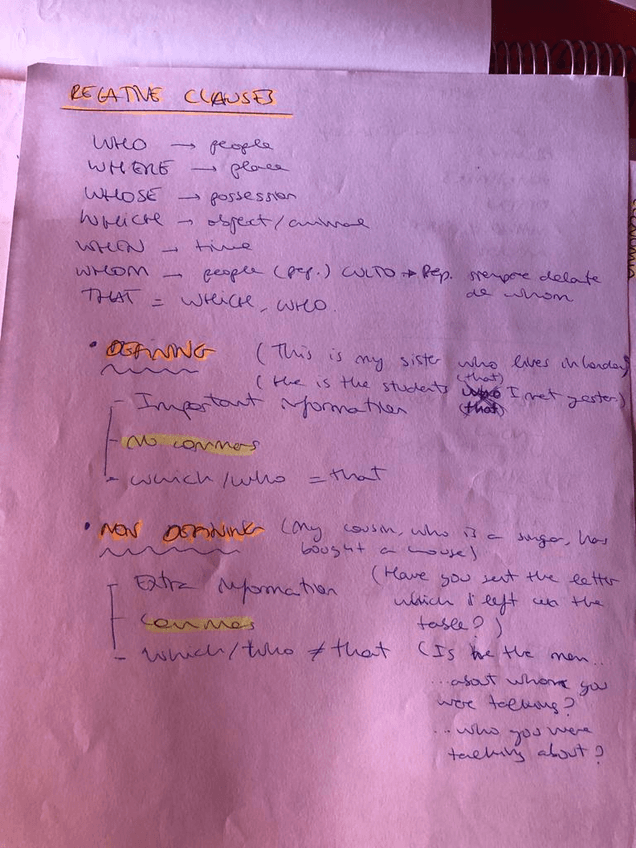 RELATIVE CLAUSES
WHO → people
WHERE → place
WHOSE → possession
WHICH → object/animal
WHEN → time
WHOM → people (prep.) CULTO → Prep. siempre delante de whom
THAT = WHICH, WHO.
• DEFINING (This is my sister who lives in london)
(that)
(He is the students who I met yester.)
(that)
- Important information
- no commas
- which/who = that
• NON DEFINING (My cousin, who is a singer, has
bought a house)
- Extra information
(Have you sent the letter
which I left on the
table?)
- Commas
- which/who ≠ that
(Is he the man..
...about whom you
were talking?
...who you were
talking about?